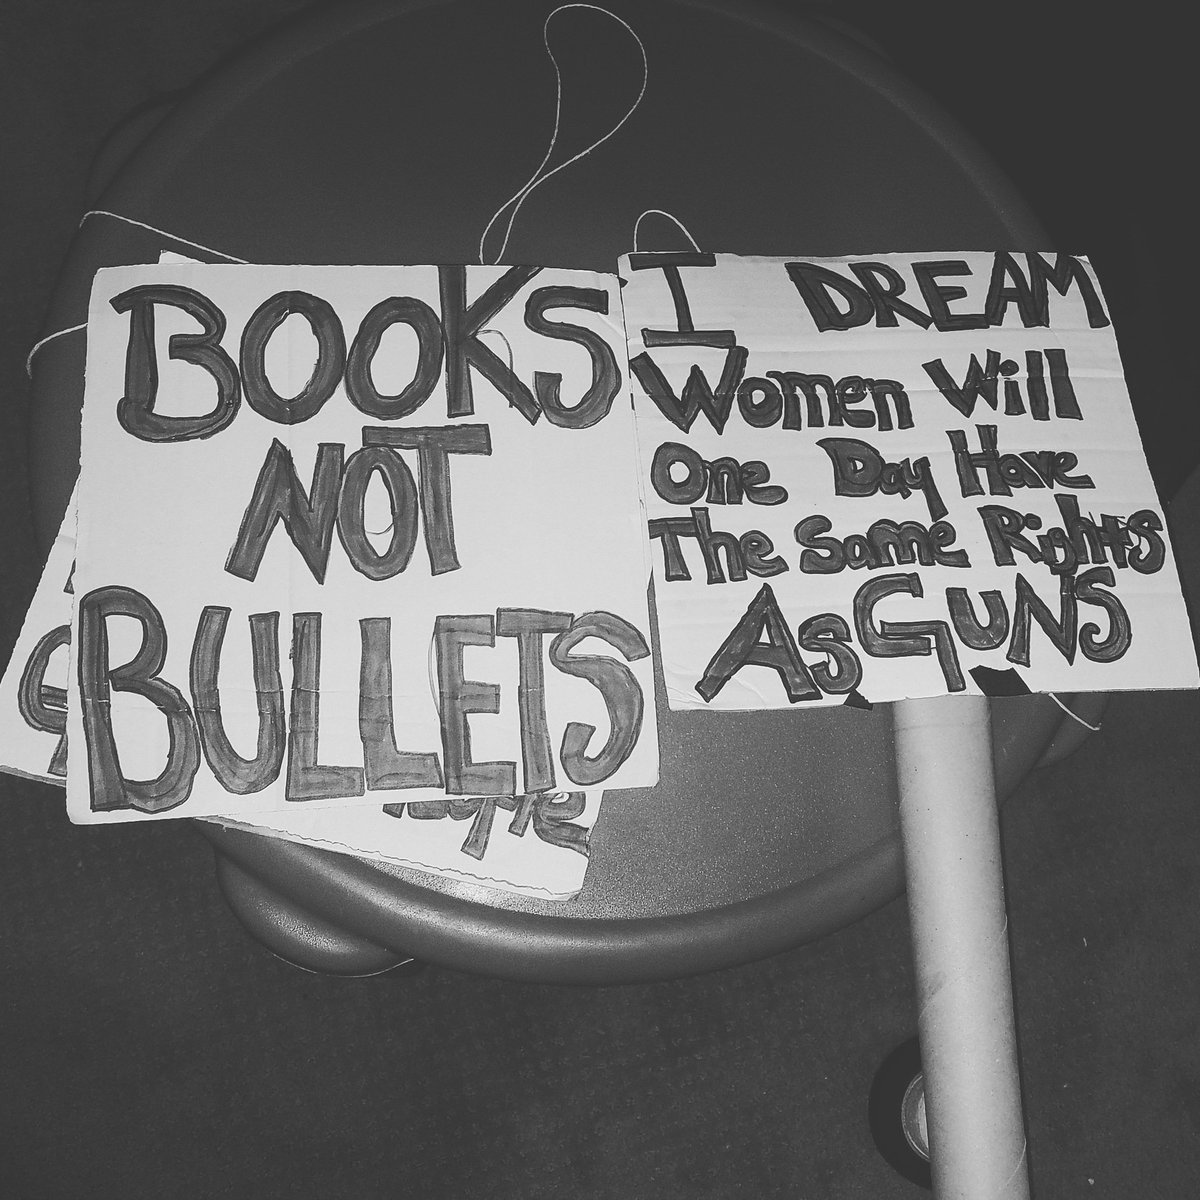 BOOKS
NOT
BULLETS
I DREAM
Women Will
One Day Have
The Same Rights
As GUNS